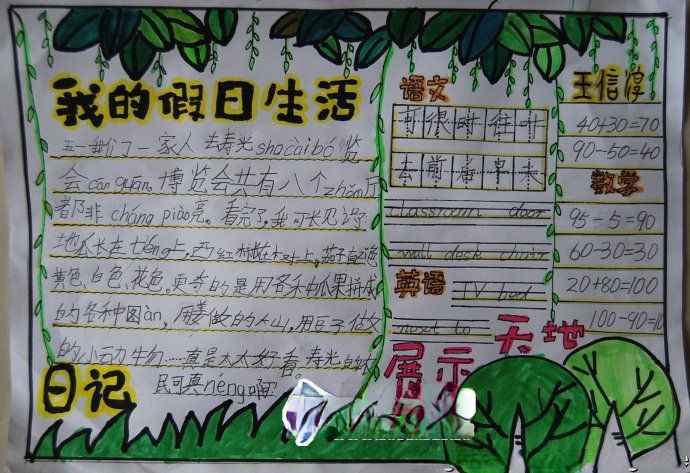 我的假日生活
五一我们了一家人去寿光shūcàibó览
会cānguān。博览会共有八个zhǎn厅
都非cháng piào亮。看完了,我可长见识了
地瓜长在téng上,西红柿长在大树上,茄子有
黄色、白色、花色。更奇的是用各种瓜果拼成
的各种图àn,用姜做的大山,用豆子做
的小动物……真是太太好看。寿光的农
民可真néng啊
日记
语文
去 前 后 早 来
classroom door
wall desk chair
英语
TV bed
next to
展示天地
王信淳
40+30=70
90-50=40
数学
95-5=90
60-30=30
20+80=100
100-90=10